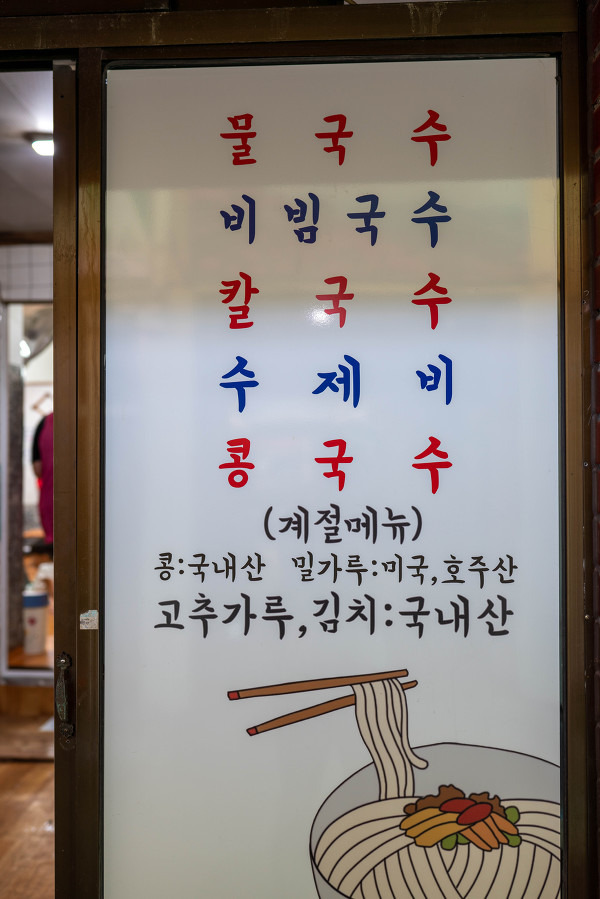 물국수
비빔국수
칼국수
수제비
콩국수
(계절메뉴)
콩:국내산 밀가루:미국,호주산
고추가루,김치:국내산